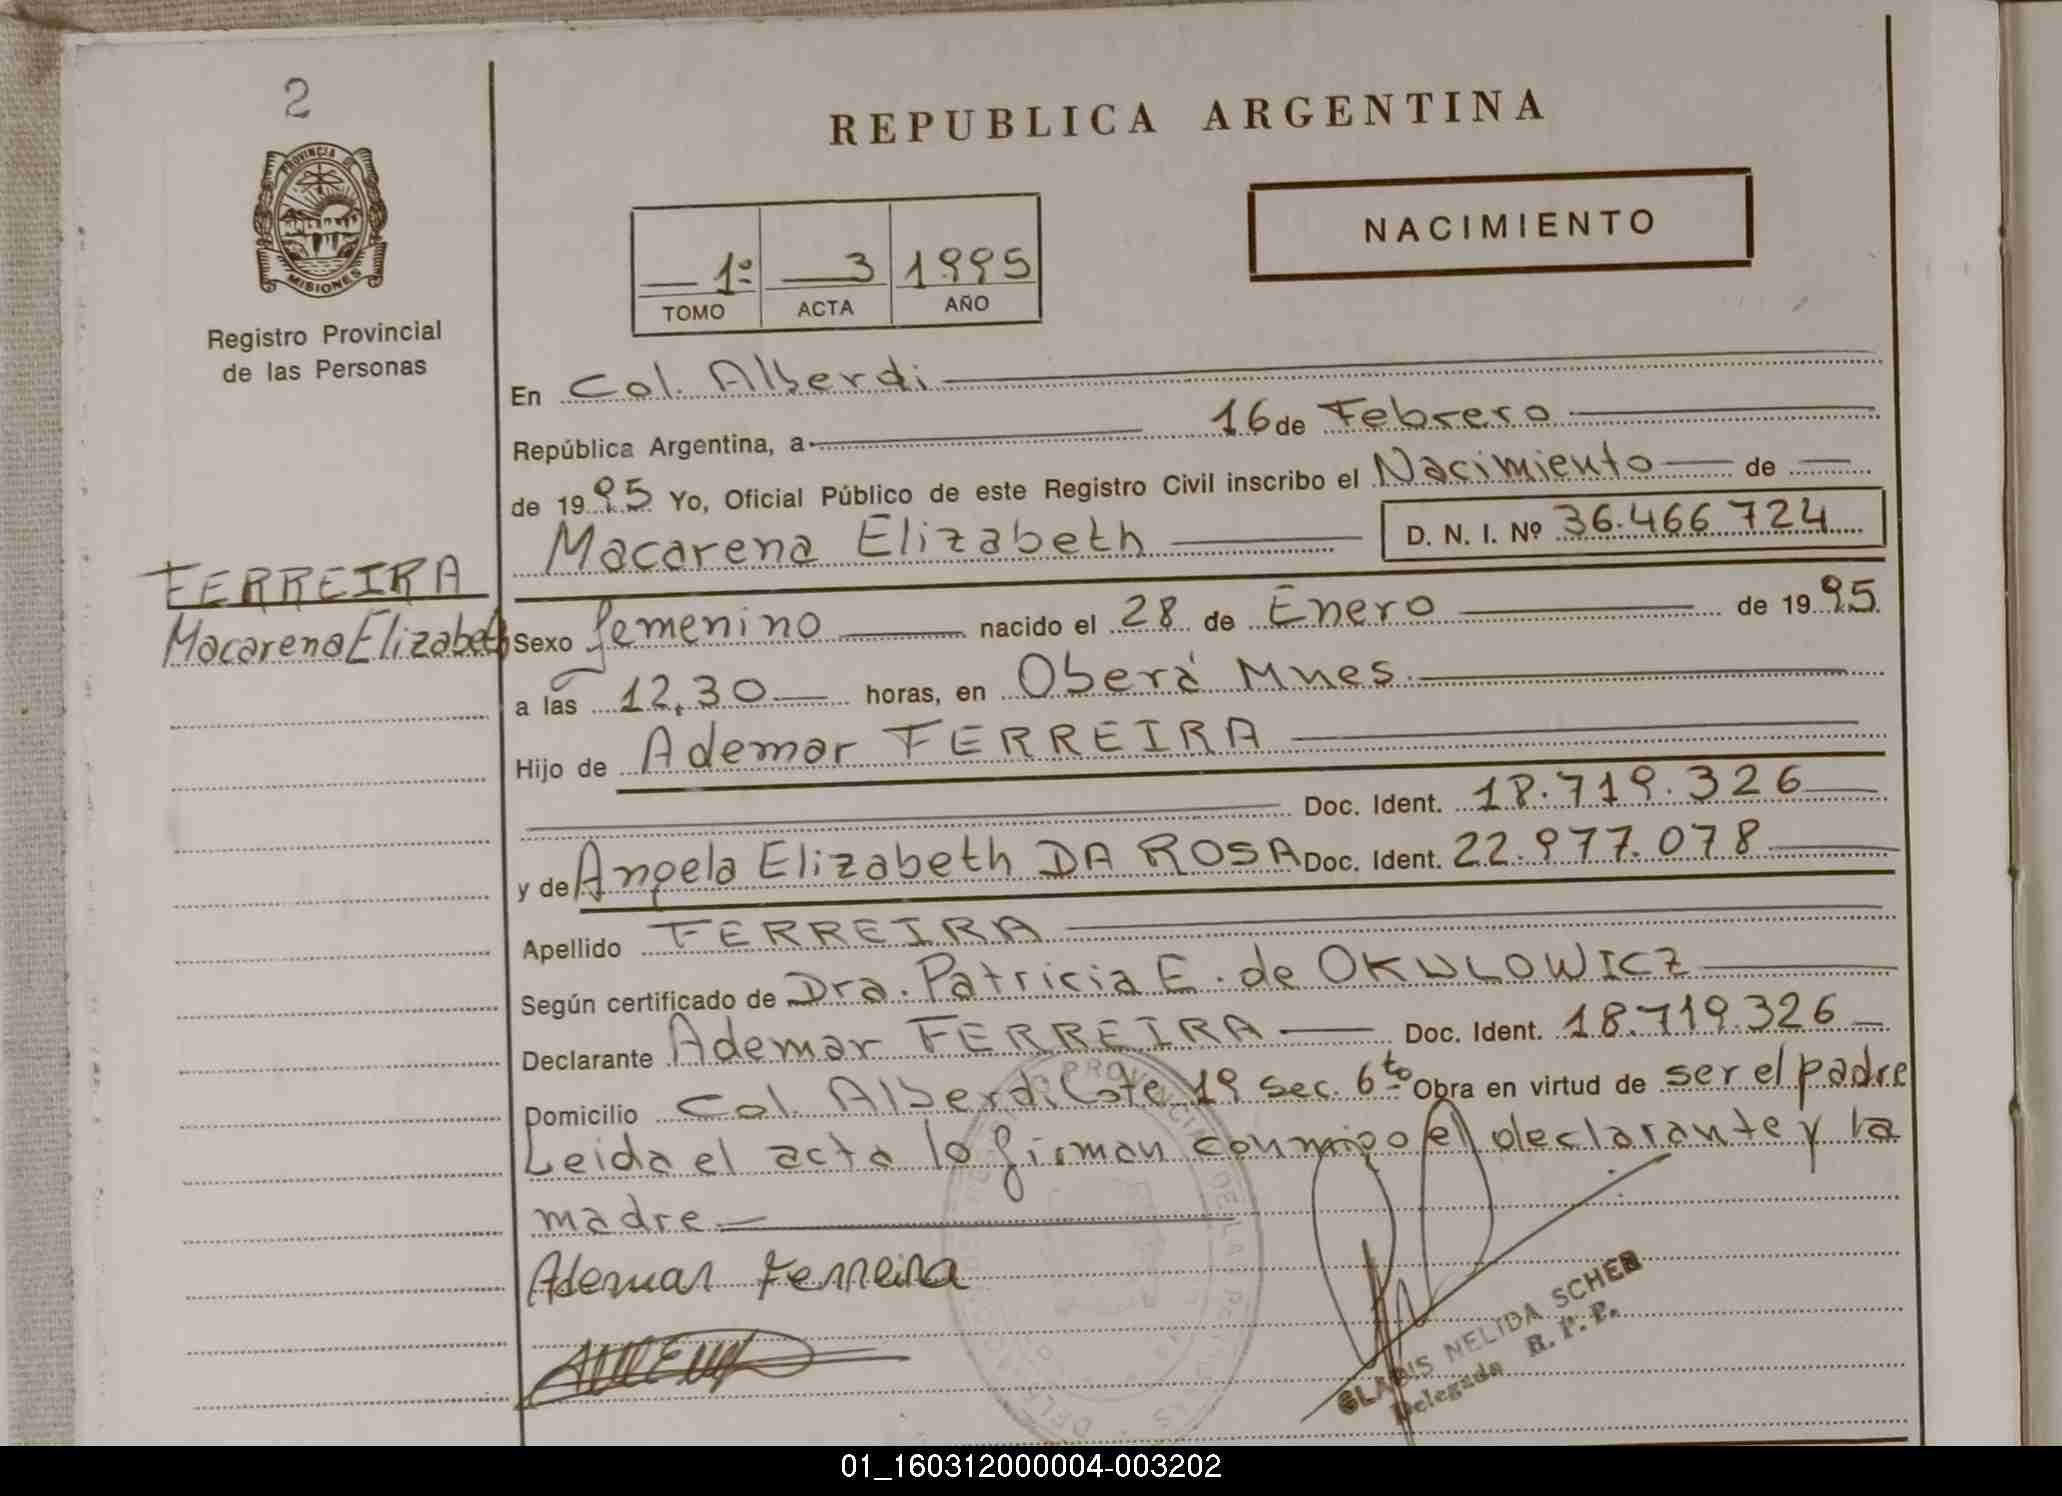 2
REPUBLICA ARGENTINA
PROVINCIA DE
MISIONES
Registro Provincial
de las Personas
1º 3 1995
TOMO ACTA AÑO
NACIMIENTO
En Col. Alberdi
República Argentina, a 16 de Febrero
de 1995 Yo, Oficial Público de este Registro Civil inscribo el Nacimiento de
Macarena Elizabeth D. N. I. Nº 36.466.724
FERREIRA
Macarena Elizabeth
Sexo femenino nacido el 28 de Enero de 1995.
a las 12,30 horas, en Oberá Mnes.
Hijo de Ademar FERREIRA
Doc. Ident. 18.719.326
y de Angela Elizabeth DA ROSA Doc. Ident. 22.977.078
Apellido FERREIRA
Según certificado de Dra. Patricia E. de OKULOWICZ
Declarante Ademar FERREIRA Doc. Ident. 18.719.326
Domicilio Col. Alberdi Lote 19 sec. 6to Obra en virtud de ser el padre
Leida el acta lo firman conmigo el declarante y la
madre
Ademar Ferreira
GLADIS NELIDA SCHER
Delegada R. P. P.
01_160312000004-003202